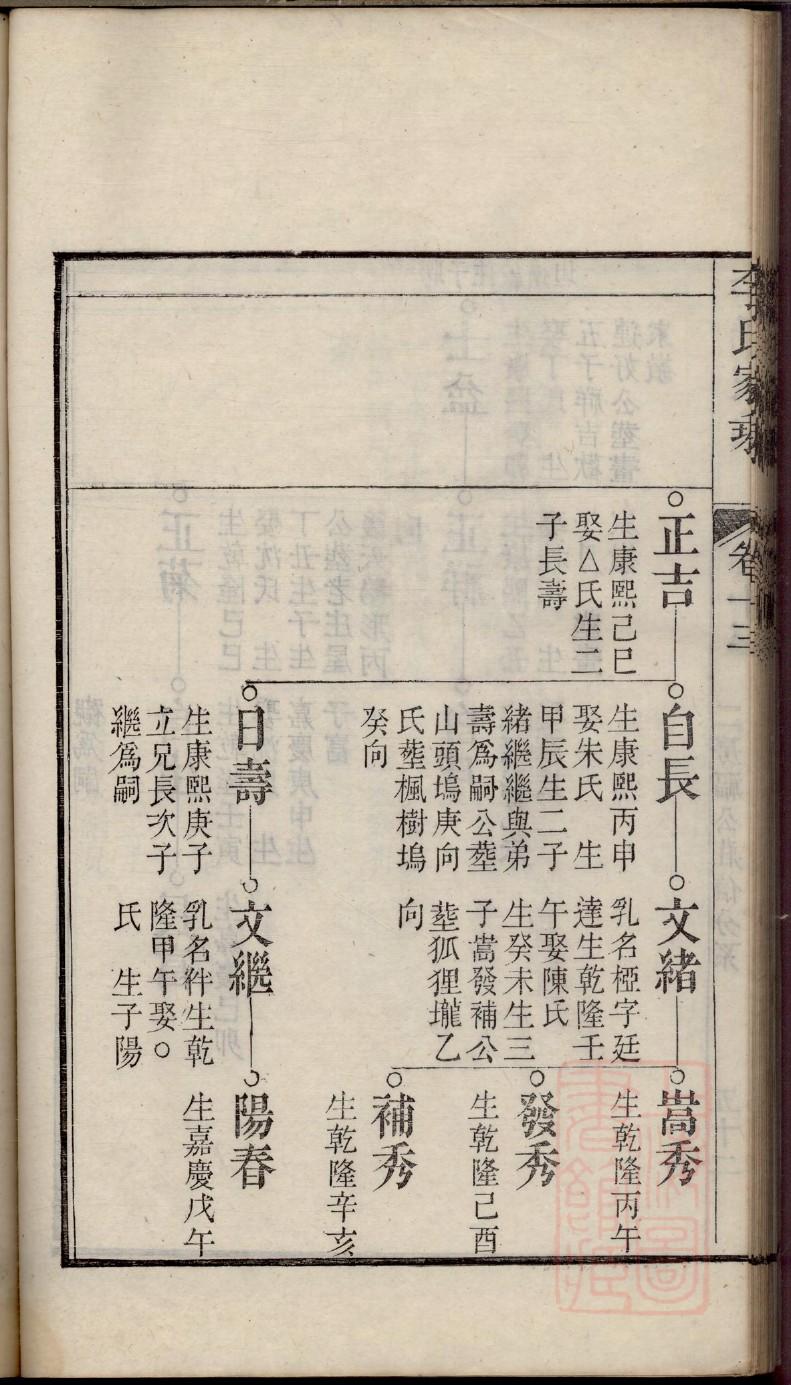 李氏家
卷十三
正吉
生康熙己巳
娶△氏生二
子長壽
自長
生康熙丙申
娶朱氏　生
甲辰生二子
緒繼繼與弟
壽爲嗣公塟
山頭塢庚向
氏塟楓樹塢
癸向
文緒
乳名椏字廷
達生乾隆壬
午娶陳氏
生癸未生三
子嵩發補公
塟狐狸壠乙
向
嵩秀
生乾隆丙午
發秀
生乾隆己酉
補秀
生乾隆辛亥
日壽
生康熙庚子
立兄長次子
繼爲嗣
文繼
乳名絆生乾
隆甲午娶○
氏　生子陽
陽春
生嘉慶戊午